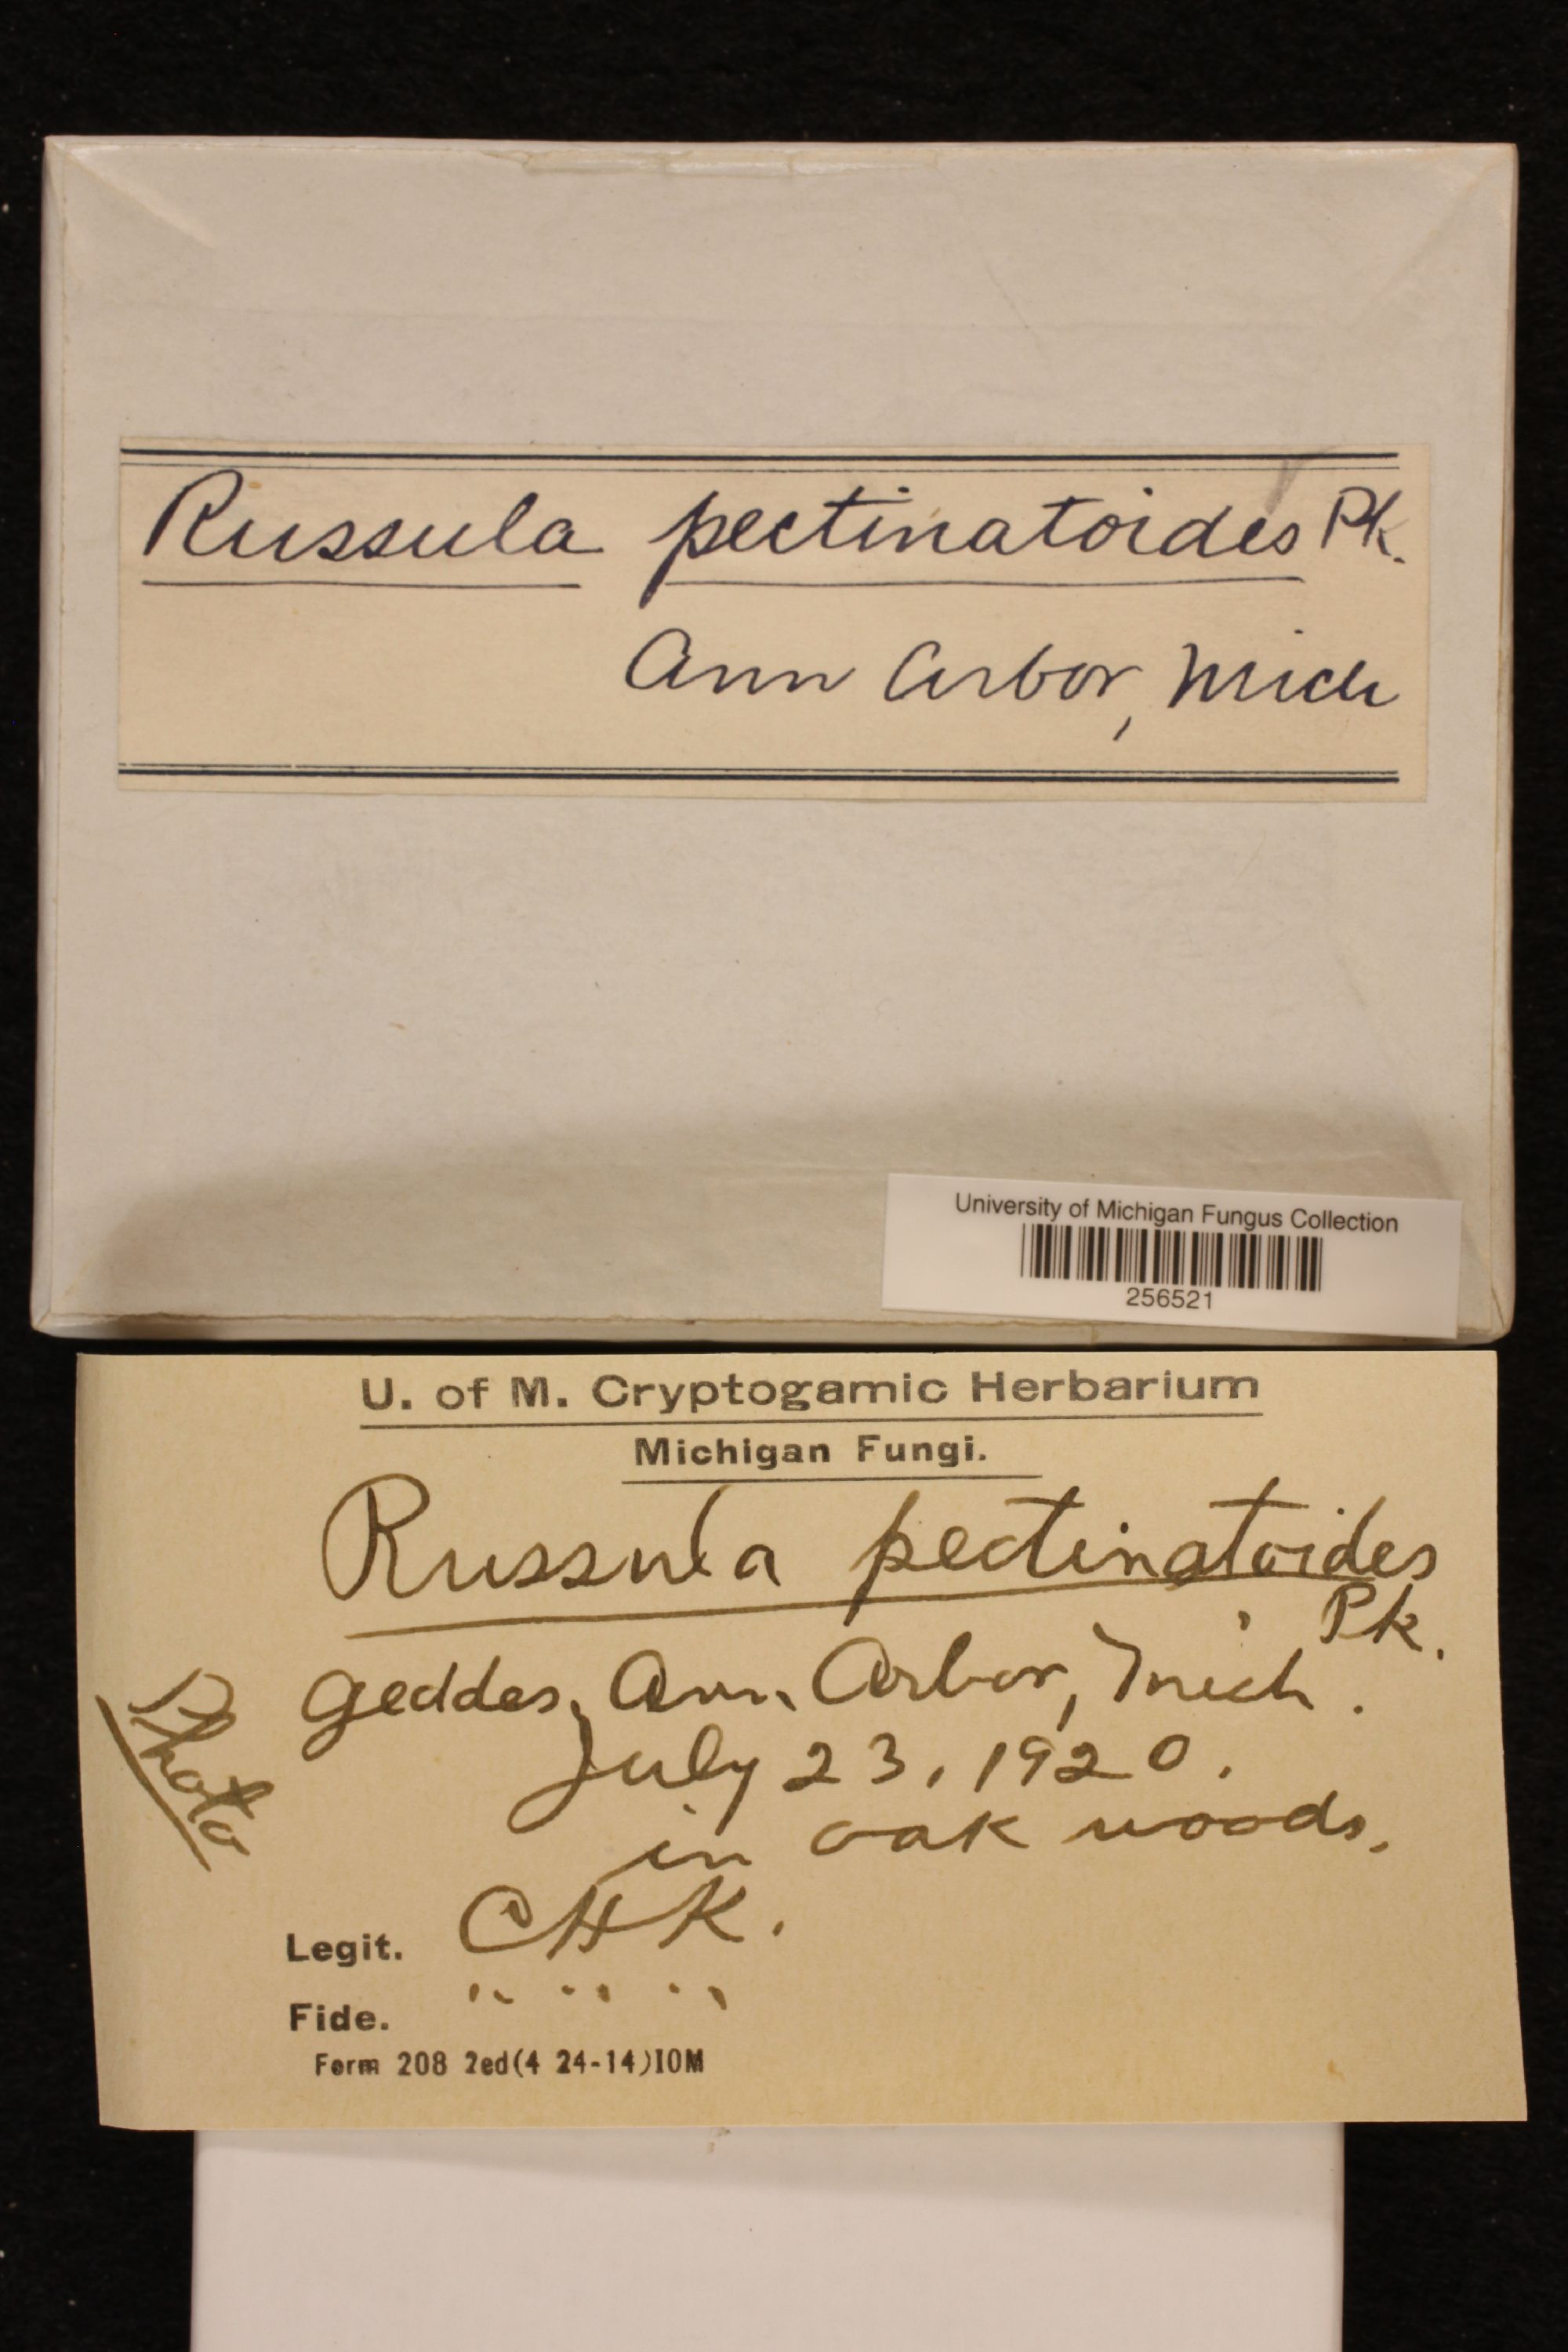 Russula pectinatoides Pk.
Ann Arbor, Mich
University of Michigan Fungus Collection
256521
U. of M. Cryptogamic Herbarium
Michigan Fungi.
Russula pectinatoides
Pk.
Geddes, Ann Arbor, Mich.
July 23, 1920.
in oak woods.
Photo
Legit. CHK.
Fide. " " "
Form 208 2ed(4 24-14)10M